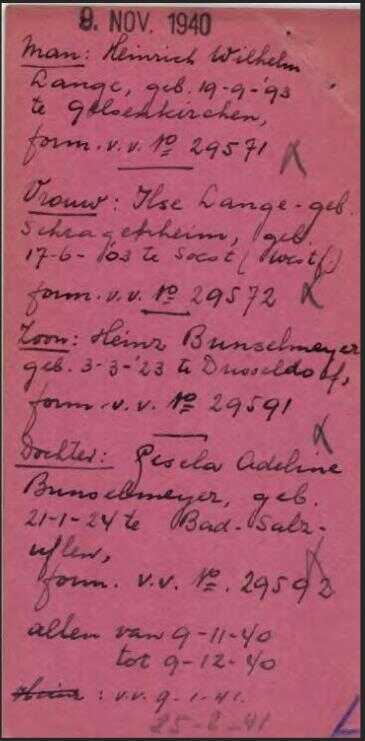 9. NOV. 1940
Man: Heinrich Wilhelm
Lange, geb. 19-9-'93
te Gelsenkirchen,
form. v.v. No 29571
Vrouw: Ilse Lange-geb.
Schragenheim, geb.
17-6-'03 te Soest (Westf.)
form. v.v. No 29572
Zoon: Heinz Bunselmeyer
geb. 3-3-'23 te Dusseldorf,
form. v.v. No 29591
Dochter: Gisela Adeline
Bunselmeyer, geb.
21-1-24 te Bad-Salz-
uflen,
form. v.v. No. 29592
allen van 9-11-40
tot 9-12-40
: v.v. 9-1-41.
25-2-41